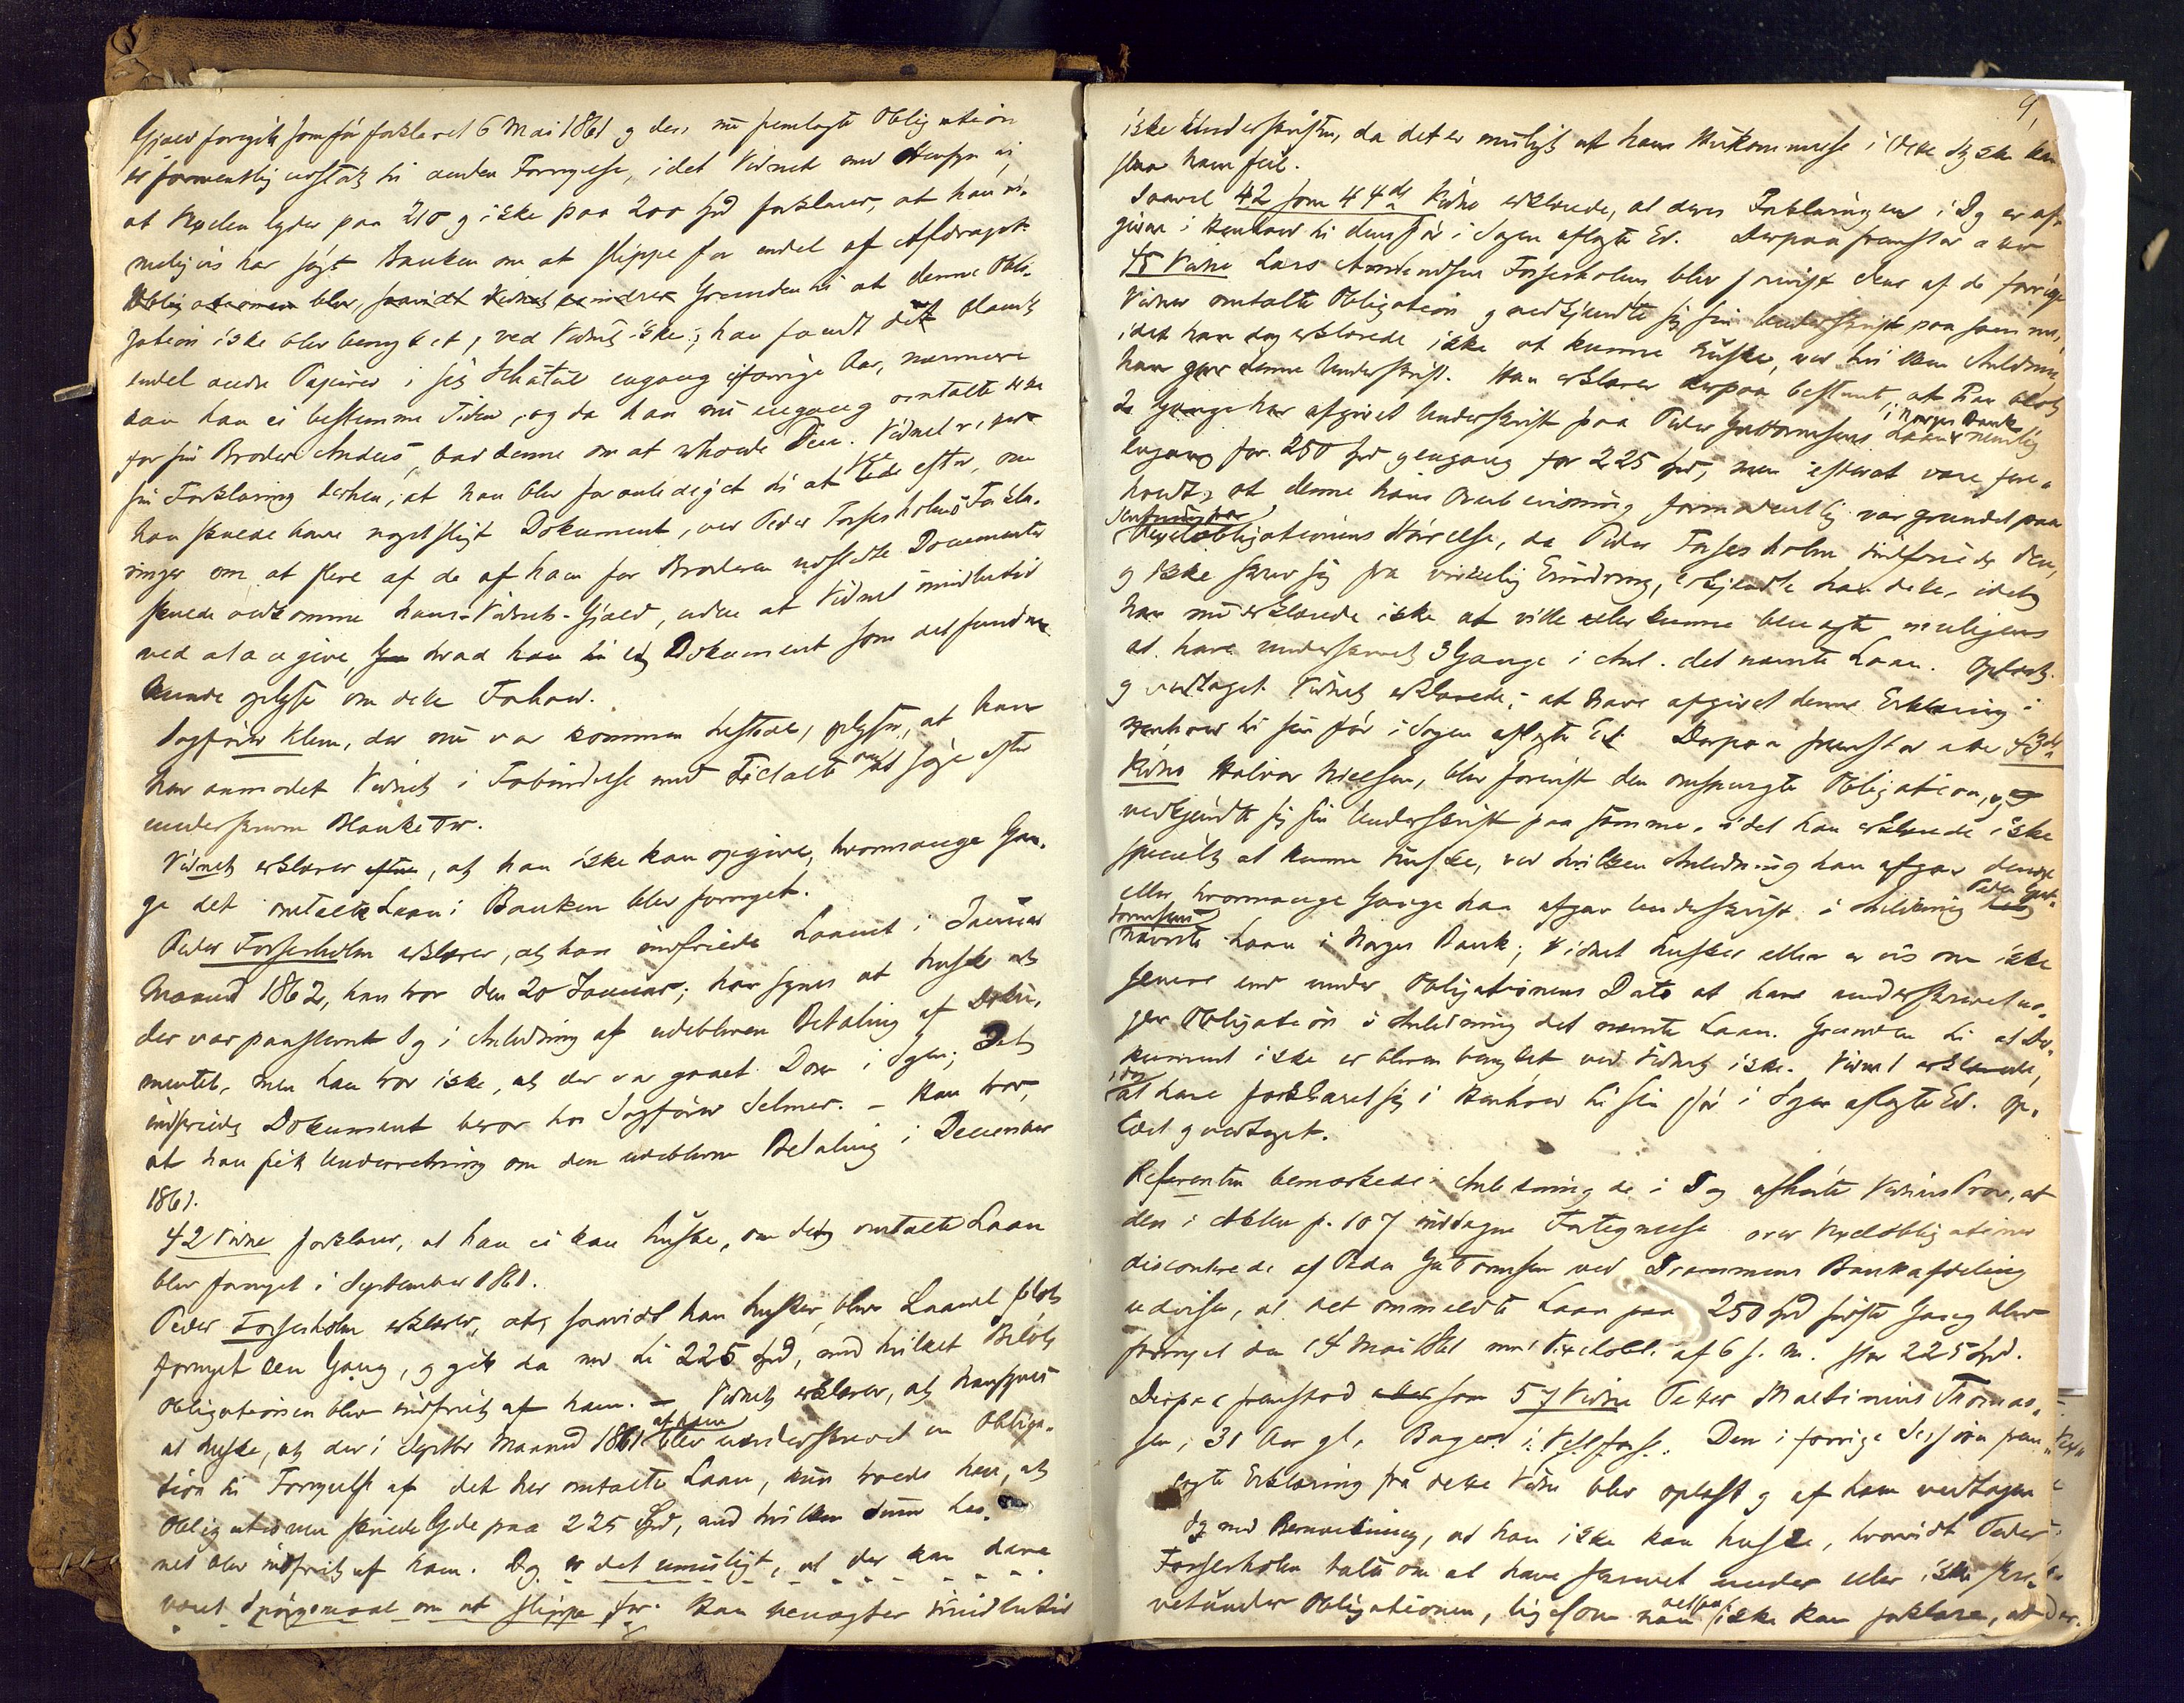 Gjæld foregik som før forklaret 6 Mai 1861 g den nu fremlagte Obligation
er formentlig udstædt til anden Fornyelse, idet Vidnet med Hensyn til
at Vexlen lyder paa 210 g ikke paa 200 Spd forklarer, at han ri-
meligvis har søgt Banken om at slippe for endel af Afdraget.
Obligationen blev, saavidt Vidnet erindrer Grunden til at denne Obli-
gation ikke blev benyttet, ved Vidnet ikke; han fandt det blandt
endel andre Papirer i sig Schatul engang i forrige Aar, nærmere
kan han ei bestemme Tiden, og da han nu engang omtalte dette
for sin Broder Anders, bad denne om at erholde Den. Vidnet
sin Forklaring derhen, at han blev foranlediget til at lede efter, om
han skulde have noget sligt Dokument, ved Peder Forsesholms Forkla-
ringer om at flere af de af ham for Broderen udstedte Documenter
skulde vedkomme hans - Vidnets - Gjæld, uden at Vidnet imidlertid
ved at angive, hvad han til et Dokument som det fundne
kunde oplyse om dette Forhold.
Sagfører Klem, der nu var kommen tilstede, oplyste, at han
har anmodet Vidnet i Forbindelse med Tidtalte om at søge efter
underskrevne Blanketter.
Vidnet erklærer efter, at han ikke kan opgive, hvormange Gan-
ge det omtalte Laan i Banken blev fornyet.
Peder Forsesholm erklærer, at han indfriede Laanet i Januar
Maaned 1862, han tror den 20 Januar; han synes at huske at
der var paastevnt Sag i Anledning af udebleven Betaling af Doku-
mentet, men han tror ikke, at der var gaaet Dom i Sagen; Det
indfriede Dokument beror hos Sagfører Selmer. - Han tror,
at han fik Underretning om den udeblevne Betaling i December
1861.
42 Vidne forklarer, at han ei kan huske, om det omtalte Laan
blev fornyet i September 1861.
Peder Forsesholm erklærer, at, saavidt han husker, blev Laanet blot
fornyet een Gang, g gik da ned til 225 Spd, med hvilket Beløb
Obligationen blev indfriet af ham. - Vidnet erklærer, at han synes
at huske, at der i Septbr Maaned 1861 blev af ham underskrevet en Obliga-
tion til Fornyelse af det her omtalte Laan, kun troede han, at
Obligationen skulde lyde paa 225 Spd, med hvilken Sum Laa-
net blev indfriet af ham. Dg er det umuligt, at der kan have
været Spørgsmaal om at slippe for. Han benægter imidlertid
9,
ikke Underskriften, da det er muligt at hans Hukommelse i dette Stykke kan
slaa ham feil.
Saavel 42 som 44de Vidne erklærede, at deres Forklaringer i Dg er af-
given i Henhold til deres før i Sagen aflagte Ed. Derpaa fremstod atter
45 Vidne Lars Amundsen Forsesholm blev forevist den af de forrige
Vidner omtalte Obligation g vedkjendte sig sin Underskrift paa samme,
idet han dog erklærede ikke at kunne huske, ved hvilken Anledning
han gav denne Underskrift. Han erklærer derpaa bestemt, at han blot
2 Gange har afgivet Underskrift paa Peder Guttormsens Laan i Norges Bank nemlig
engang for 250 Spd g engang for 225 Spd, men efterat være fore-
holdt, at denne hans Overbevisning formodentlig var grundet paa
Vexelobligationens Størrelse, da Peder Forsesholm indfriede den,
g ikke skrev sig fra virkelig Erindring, erkjendte han dette, idet
han nu erklærede ikke at ville eller kunne benægte muligens
at have underskrevet 3 Gange i Anl. det nævnte Laan. Oplæst
g vedtaget. Vidnet erklærede, at have afgivet denne Erklæring i
Henhold til sin før i Sagen aflagte Ed. Derpaa fremstod atter 43de
Vidne Halvor Nielsen, blev forevist den omspurgte Obligation, og
vedkjendte sig sin Underskrift paa samme, idet han erklærede ikke
specielt at kunne huske, ved hvilken Anledning han afgav denne
eller hvormange Gange han afgav Underskrift i Anledning Peder Gut-
tormsens
nævnte Laan i Norges Bank; Vidnet husker eller er vis om ikke
senere end under Obligationens Dato at have underskrevet no-
gen Obligation i Anledning det nævnte Laan. Grunden til at Do-
kument ikke er bleven benyttet ved Vidnet ikke. Vidnet erklærede,
at have forklaret sig i Henhold til sin før i Sagen aflagte Ed. Op-
læst g vedtaget.
Referenten bemærkede i Anledning de i Dag afhørte Vidners Prov, at
den i Akten p. 107 indtagne Fortegnelse over Vexelobligationer
disconterede af Peder Guttormsen ved Drammens Bankafdeling
udviser, at det ommeldte Laan paa 250 Spd første Gang blev
fornyet den 14 Mai 1861 med Vexelobl. af 6 s. M. stor 225 Spd.
Derpaa fremstod atter som 57 Vidne Peter Martinius Thomas-
sen, 31 Aar gl., Bager i Vestfoss. Den i forrige Session frem-
lagte Erklæring fra dette Vidne blev oplæst g af ham vedtagen
dg med Bemærkning, at han ikke kan huske, hvorvidt Peder
Forsesholm talte om at have skrevet under eller ikke skre-
vet under Obligationen, ligesom han ikke kan forklare, at der